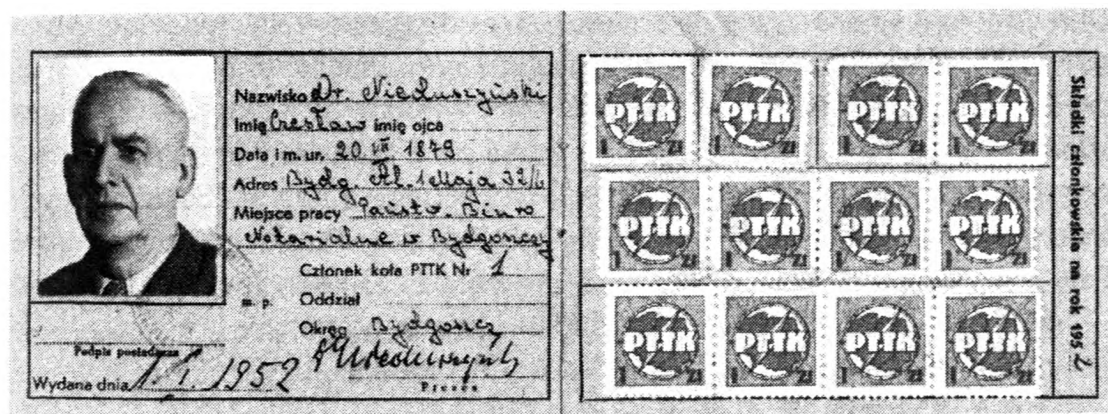 Nazwisko Dr. Nieduszyński
Imię Czesław imię ojca
Data i m. ur. 20 VII 1879
Adres Bydg. Al. 1 Maja 32/
Miejsce pracy Państw. Biuro
Notarialne w Bydgoszczy
Członek koła PTTK Nr 1
m. p. Oddział
Okręg Bydgoszcz
Podpis posiadacza
Wydana dnia 1. I. 1952
Prezes
PTTK PTTK PTTK PTTK
1 Zł 1 Zł 1 Zł 1 Zł
PTTK PTTK PTTK PTTK
1 Zł 1 Zł 1 Zł 1 Zł
PTTK PTTK PTTK PTTK
1 Zł 1 Zł 1 Zł 1 Zł
Składki członkowskie na rok 1952